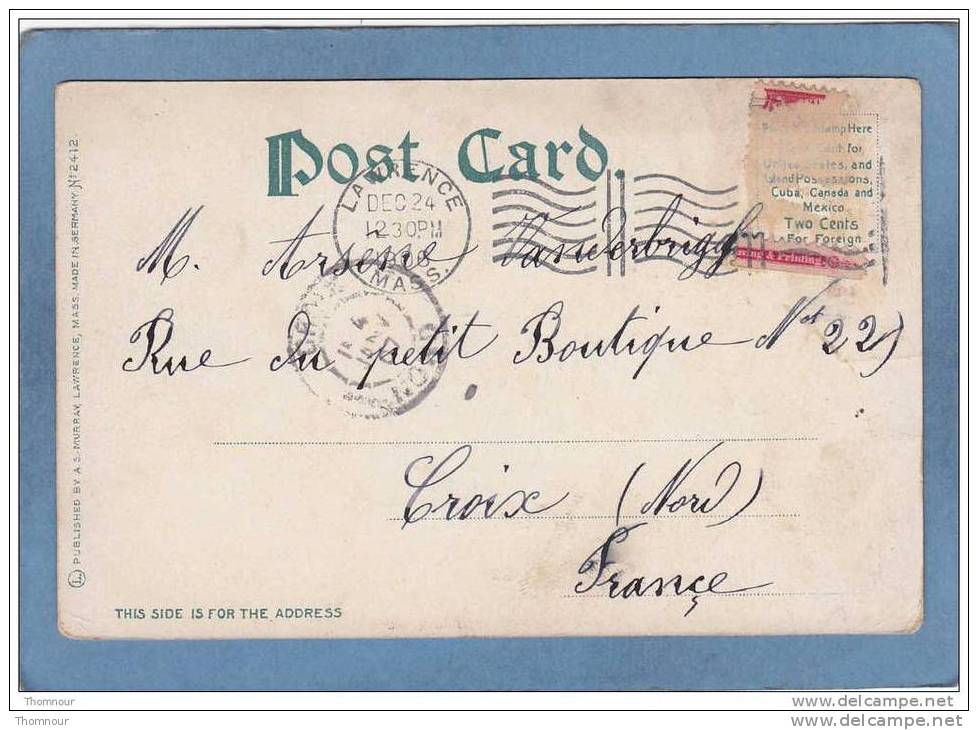 Post Card.
LAWRENCE
DEC 24
12 30 PM
MASS.
Stamp Here
for
United States, and
Island Possessions,
Cuba, Canada and
Mexico
Two Cents
For Foreign
& Printing
M. Arsene Vanderbrigg
Rue du petit Boutique Nº 22)
Croix (Nord)
France
THIS SIDE IS FOR THE ADDRESS
(L.) PUBLISHED BY A.S. MURRAY, LAWRENCE, MASS. MADE IN GERMANY Nº 2412.
Thomnour
Thomnour
http://www.delcampe.net